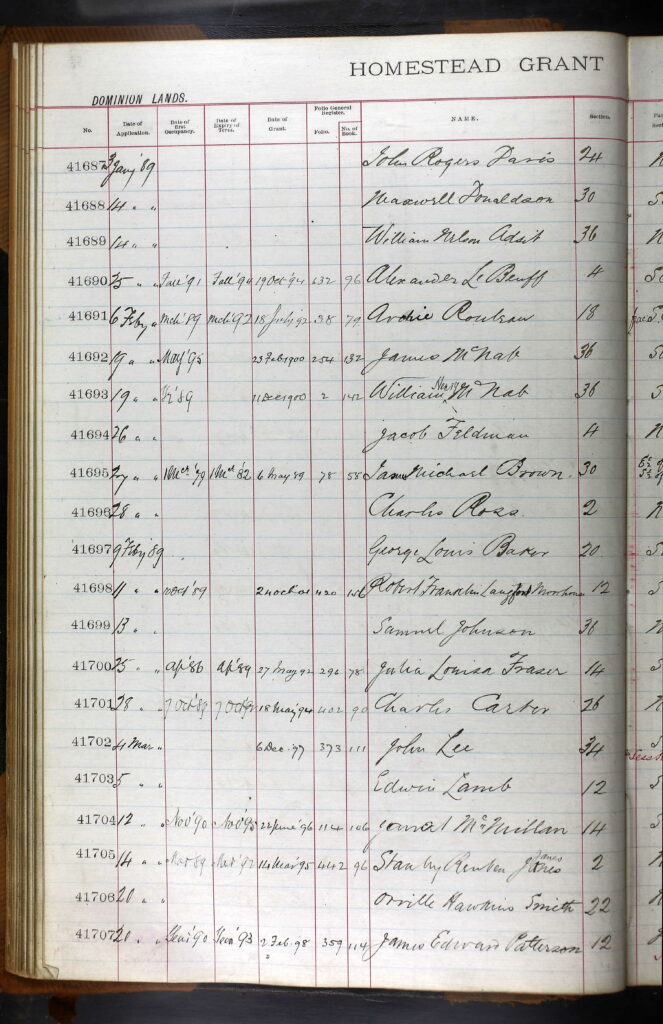 HOMESTEAD GRANT
DOMINION LANDS.
No. Date of Application. Date of first Occupancy. Date of Expiry of Term. Date of Grant. Folio General Register. Folio. No. of Book. NAME. Section.
41687 3 Jany '89 John Rogers Davis 24
41688 14 " " Maxwell Donaldson 30
41689 14 " " William Nelson Adsit 36
41690 25 " " Fall '91 Fall '94 19 Oct '94 632 96 Alexander Le Beuff 4
41691 6 Feby " Mch '89 Mch '92 18 July 92 38 79 Archie Rouleau 18
41692 19 " " May '95 23 Feb 1900 254 132 James McNab 36
41693 19 " " 89 11 Dec 1900 2 142 William Henry McNab 36
41694 26 " " Jacob Feldman 4
41695 27 " " 1 Mch '79 1 Mch '82 6 May 89 78 58 James Michael Brown. 30
41696 28 " " Charles Ross 2
41697 9 Feby '89 George Louis Baker 20
41698 11 " " Oct '89 24 Oct 01 420 156 Robert Franklin Langford Morrhouse 12
41699 13 " " Samuel Johnson 36
41700 25 " " Ap '86 Ap '89 27 May 92 296 78 Julia Louisa Fraser 14
41701 28 " " 7 Oct '89 7 Oct 92 18 May 94 402 90 Charles Carter 26
41702 4 Mar " 6 Dec. 97 373 111 John Lee 34
41703 5 " " Edwin Lamb 12
41704 12 " " Nov '90 Nov '95 22 June '96 114 106 McMillan 14
41705 14 " " Mar '89 Mar '92 14 Mar '95 442 96 Stanley Reuben Jones 2
41706 20 " " Orville Hawkins Smith 22
41707 20 " " '90 '93 2 Feb. 98 359 114 James Edward Patterson 12